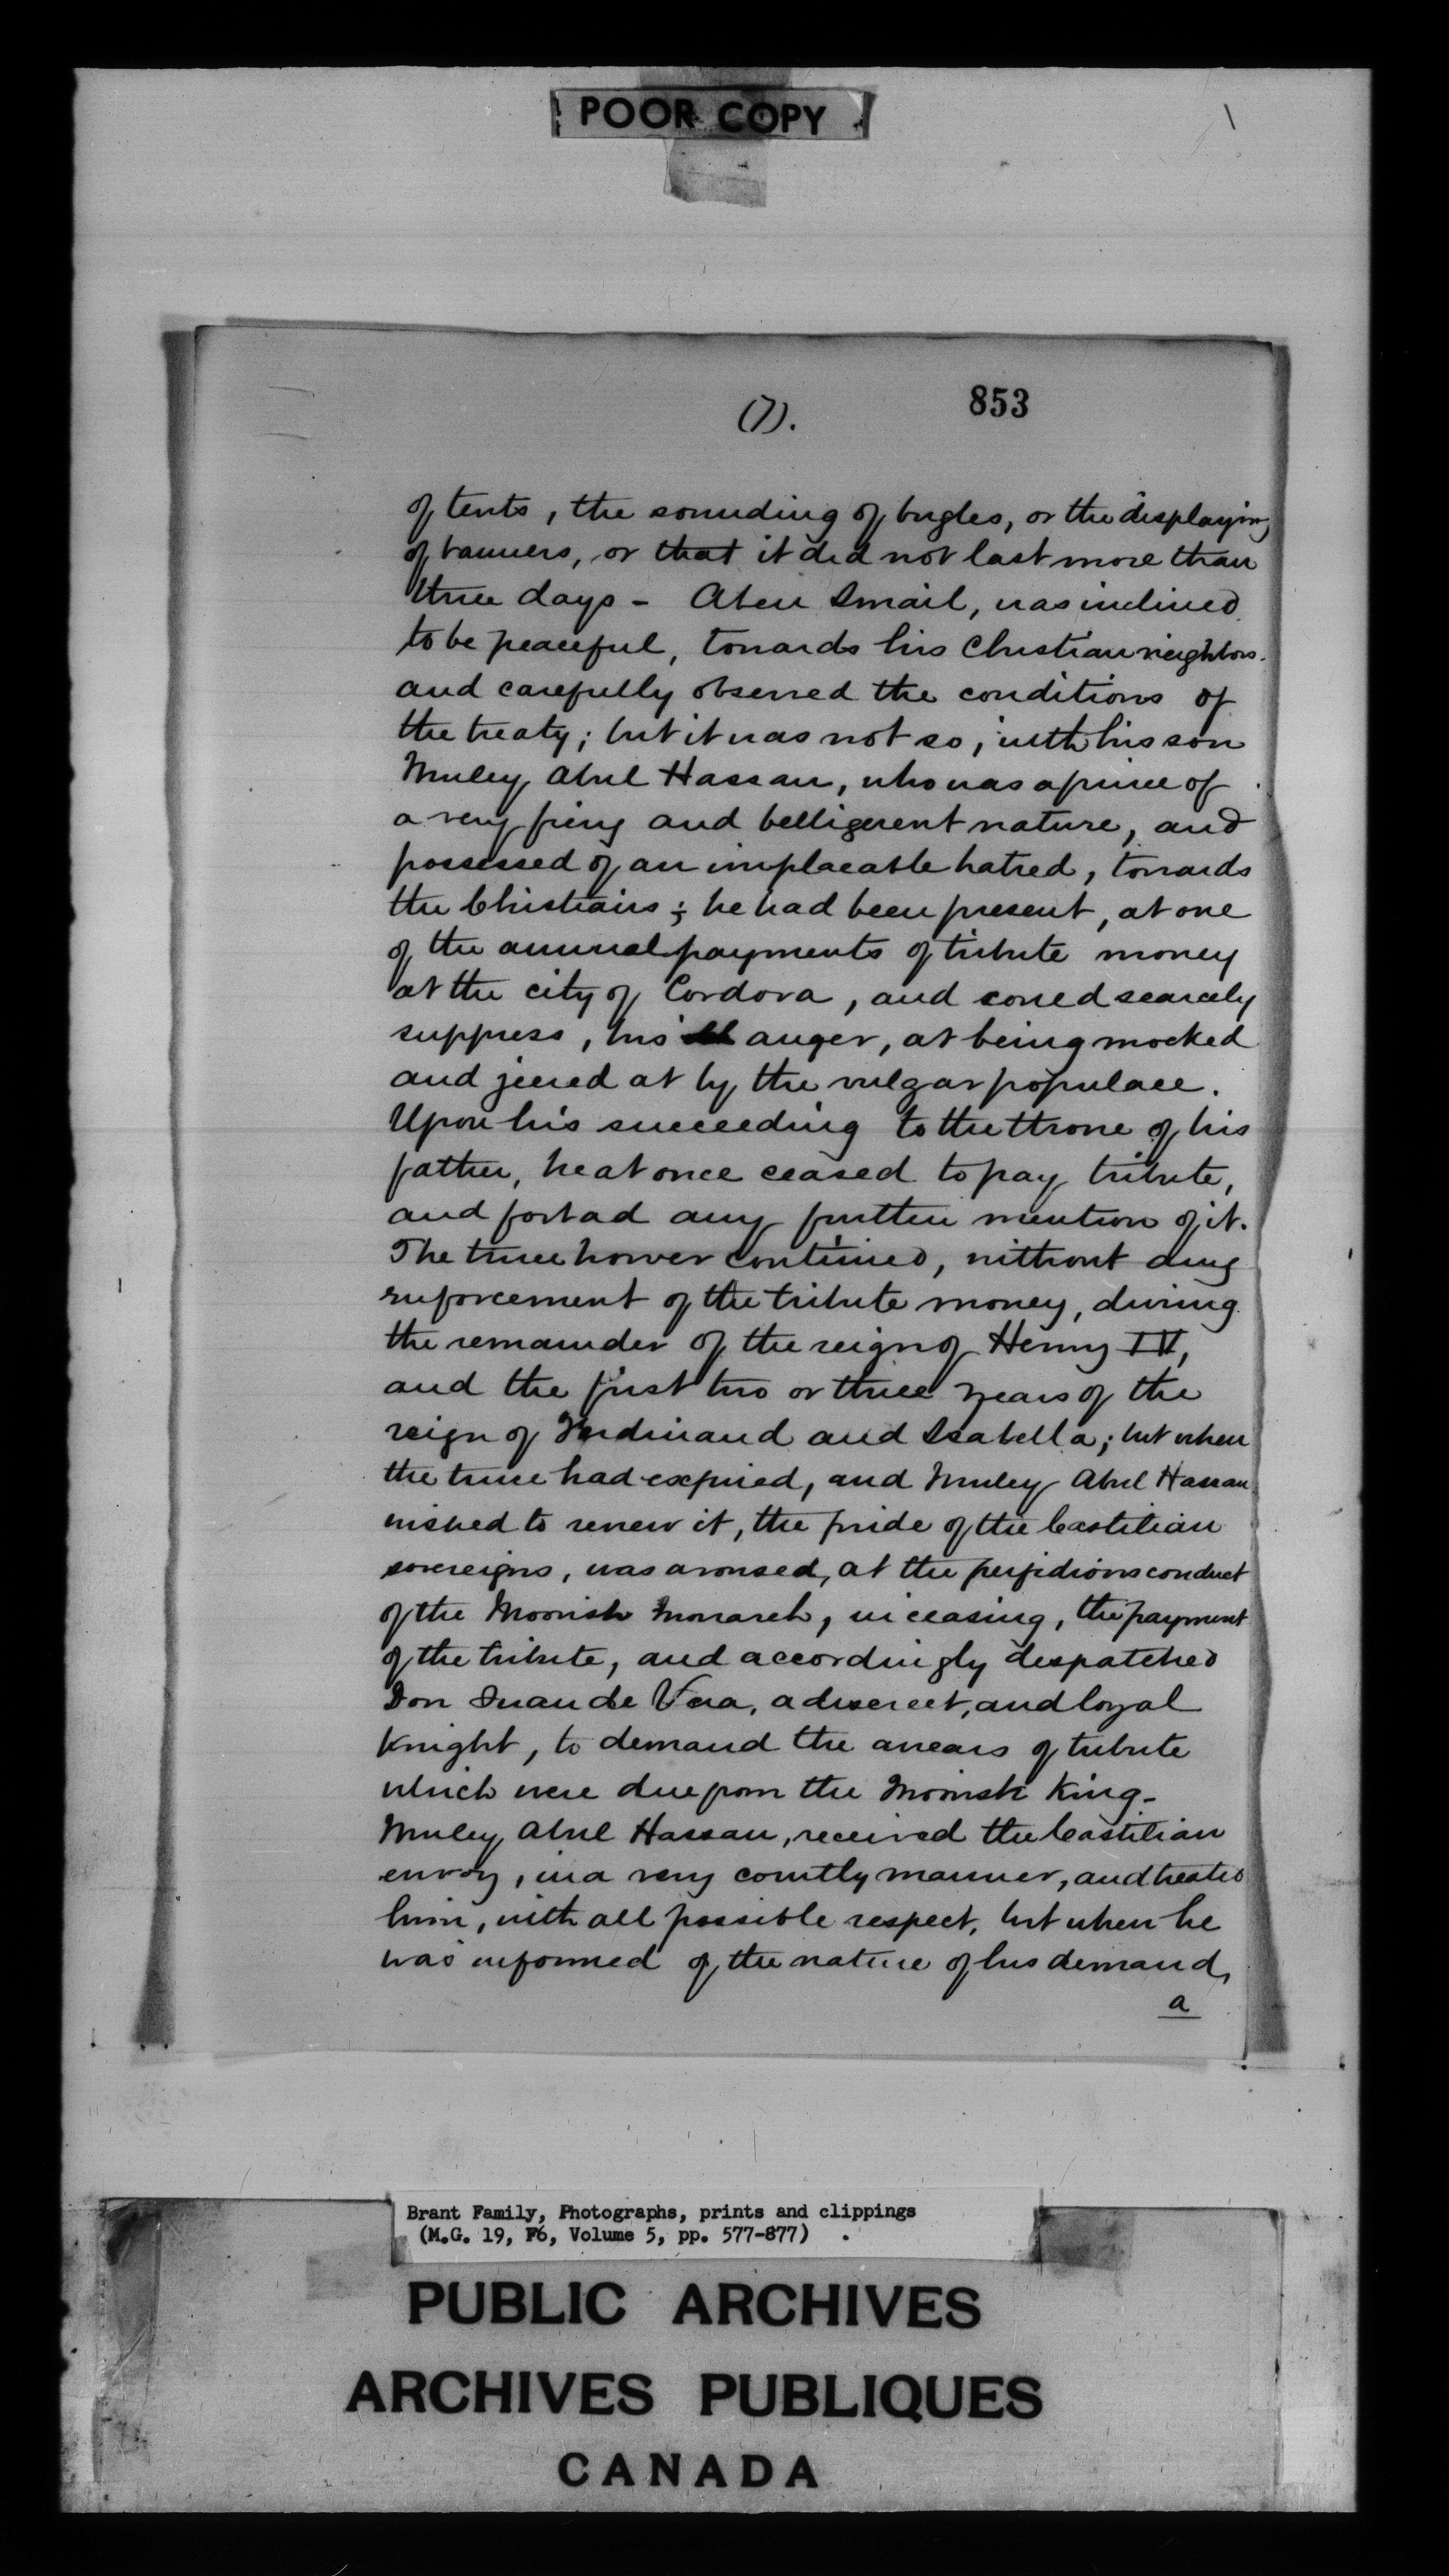 POOR COPY
(7).
853
of tents, the sounding of bugles, or the displaying
of banners, or that it did not last more than
three days - Aben Ismail, was inclined
to be peaceful, towards his Christian neighbors.
and carefully observed the conditions of
the treaty; but it was not so; with his son
Muley Abul Hassan, who was a prince of
a very fiery and belligerent nature, and
possessed of an implacable hatred, towards
the Christians; he had been present, at one
of the annual payments of tribute money
at the city of Cordova, and coued scarcely
suppress, his anger, at being mocked
and jeered at by the vulgar populace.
Upon his succeeding to the throne of his
father, he at once ceased to pay tribute,
and forbad any further mention of it.
The truce however continued, without any
enforcement of the tribute money, during
the remainder of the reign of Henry IV,
and the first two or three years of the
reign of Ferdinand and Isabella; but when
the truce had expired, and Muley Abul Hassan
wished to renew it, the pride of the Castilian
sovereigns, was aroused, at the perfidious conduct
of the Moorish Monarch, in ceasing, the payment
of the tribute, and accordingly despatched
Don Juan de Vera, a discreet, and loyal
Knight, to demand the arrears of tribute
which were due from the Moorish King-
Muley Abul Hassan, received the Castilian
envoy, in a very courtly manner, and treated
him, with all possible respect, but when he
was informed of the nature of his demand,
a
Brant Family, Photographs, prints and clippings
(M.G. 19, F6, Volume 5, pp. 577-877) .
PUBLIC ARCHIVES
ARCHIVES PUBLIQUES
CANADA